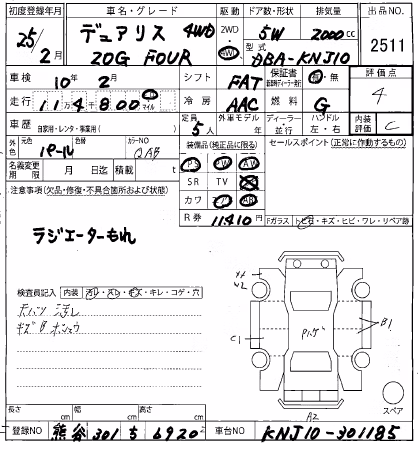 初度登録年月 車名・グレード 駆動 ドア数・形状 排気量 出品NO.
25/2月 デュアリス 4WD 2WD・4WD 5W 2000cc 2511
20G FOUR 型式 DBA-KNJ10
車検 10年 2月 シフト FAT 保証書 有・無 評価点
走行 11万4千800 km マイル 冷房 AAC 燃料 G 4
車歴 自家用・レンタ・事業用( ) 定員 5人 外車モデル 年 ディーラー・並行 ハンドル 左・右 内装評価 C
外色 元色 パール 色替 カラーNO QAB 装備品(純正品に限る) セールスポイント(正常に動作するもの)
名義変更期限 月 日 積載 t PS PW AW
注意事項(欠品・修復・不具合箇所および状態) SR TV
カワ
R券 11410円 Fガラス トビ石・キズ・ヒビ・ワレ・リペア跡
ラジエーターもれ
検査員記入 内装 汚レ・スレ・キズ・キレ・コゲ・穴
W2
B1
C1
A2
スペア
長さ cm 幅 cm 高さ cm
登録NO 熊谷 301 ち 6920 車台NO KNJ10-301185